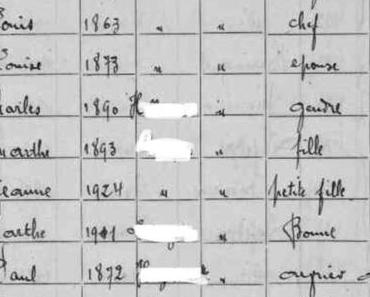 ouis 1863 " " chef
ouise 1873 " " epouse
harles 1890 H " gendre
marthe 1893 " fille
eanne 1924 " " petite fille
arthe 1901 " Bonne
Paul 1872 " ouvrier